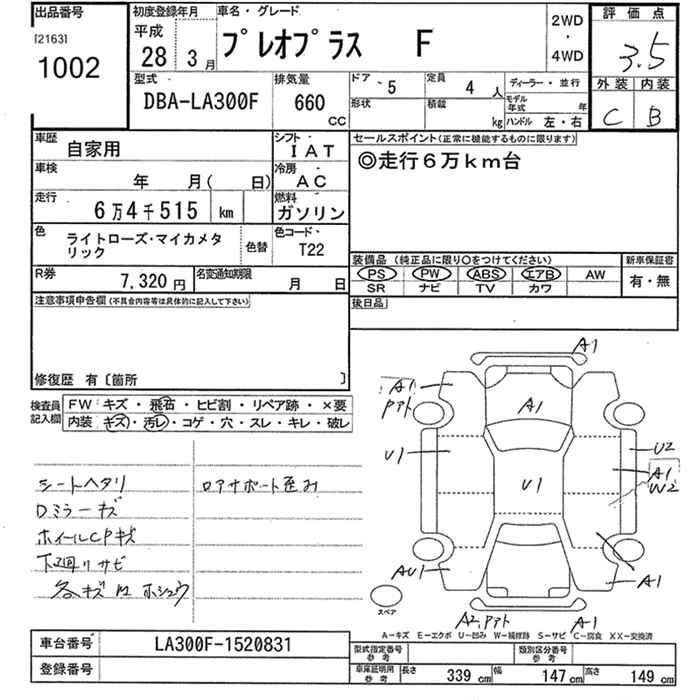 出品番号
[2163]
1002
初度登録年月
平成
28年 3月
車名・グレード
プレオプラス F
2WD
・
4WD
評価点
3.5
外装 内装
C B
型式
DBA-LA300F
排気量
660
CC
ドア・ 5
形状
定員 4 人
積載 kg
ディーラー・並行
モデル年式 年
ハンドル 左・右
車歴
自家用
シフト・
IAT
車検
年 月( 日)
冷房・
AC
走行
6万4千515 km
燃料
ガソリン
色
ライトローズ・マイカメタリック
色替
色コード・
T22
R券
7,320 円
名変通知期限
月 日
セールスポイント(正常に機能するものに限ります)
◎走行6万km台
装備品 (純正品に限り○をつけてください)
PS PW ABS エアB AW
SR ナビ TV カワ
新車保証書
有・無
後日品
注意事項申告欄(不具合内容等は具体的に記入して下さい)
修復歴 有〔箇所 〕
検査員記入欄
FW:キズ・飛石・ヒビ割・リペア跡・×要
内装:キズ・汚レ・コゲ・穴・スレ・キレ・破レ
シートヘタリ
ロアサポート歪み
Dミラーキズ
ホイールCPキズ
下廻りサビ
各キズ凹ホシュウ
A1
A1
アト
A1
U1
U1
U2
A1
W2
AU1
A1
A2,アト
A1
スペア
A－キズ E－エクボ U－凹み W－補修跡 S－サビ C－腐食 XX－交換済
車台番号
LA300F-1520831
登録番号
型式指定番号
参考
類別区分番号
参考
車庫証明用
参考
長さ 339 cm
幅 147 cm
高さ 149 cm